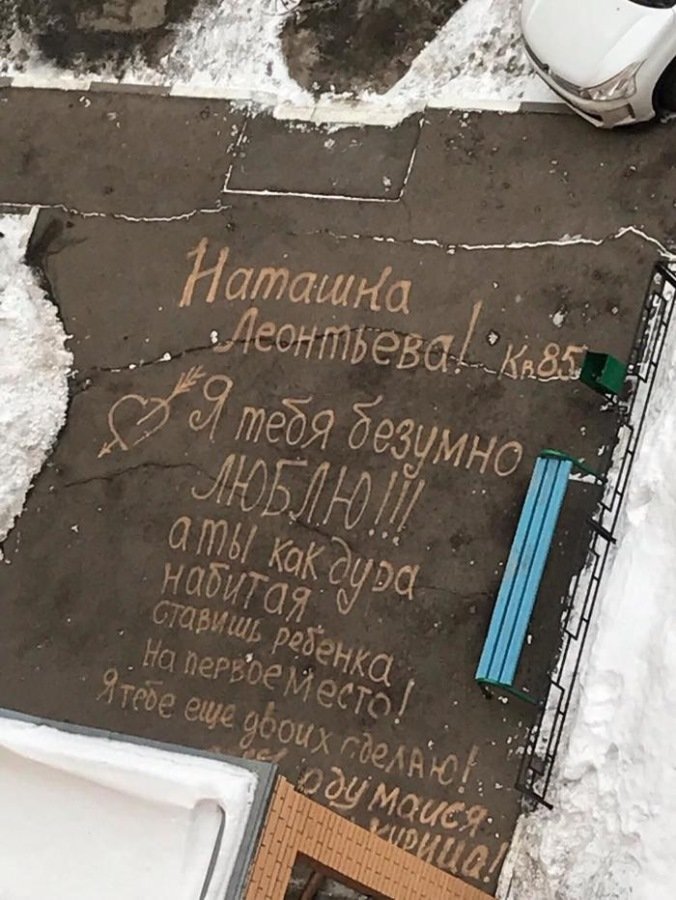 Наташка
Леонтьева! Кв85
Я тебя безумно
ЛЮБЛЮ!!!
а ты как дура
набитая
ставишь ребенка
на первое место!
Я тебе еще двоих сделаю!
курица!